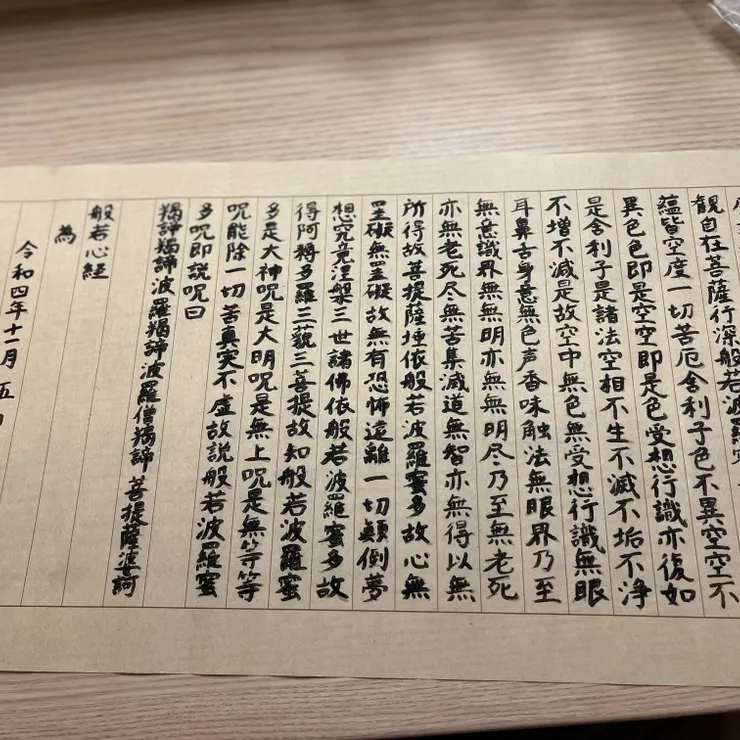 観自在菩薩行深般若波羅
蘊皆空度一切苦厄舎利子色不異空空不
異色色即是空空即是色受想行識亦復如
是舎利子是諸法空相不生不滅不垢不浄
不増不減是故空中無色無受想行識無眼
耳鼻舌身意無色声香味触法無眼界乃至
無意識界無無明亦無無明尽乃至無老死
亦無老死尽無苦集滅道無智亦無得以無
所得故菩提薩埵依般若波羅蜜多故心無
罣礙無罣礙故無有恐怖遠離一切顛倒夢
想究竟涅槃三世諸佛依般若波羅蜜多故
得阿耨多羅三藐三菩提故知般若波羅蜜
多是大神呪是大明呪是無上呪是無等等
呪能除一切苦真実不虚故説般若波羅蜜
多呪即説呪曰
羯諦羯諦波羅羯諦波羅僧羯諦菩提薩婆訶
般若心経
為
令和四年十一月五日